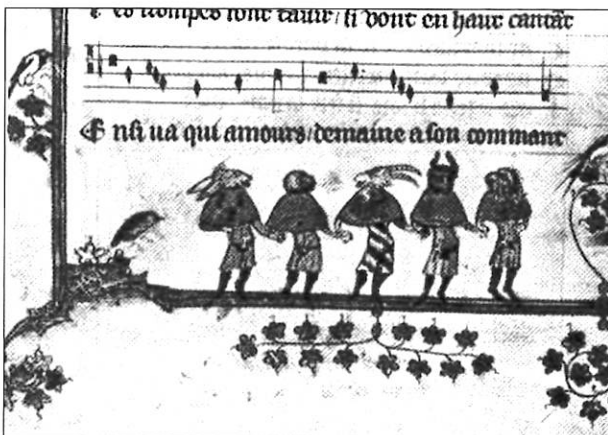 trompes font si vont en haut cantāt
Ensi ua qui amours/demaine a son commant